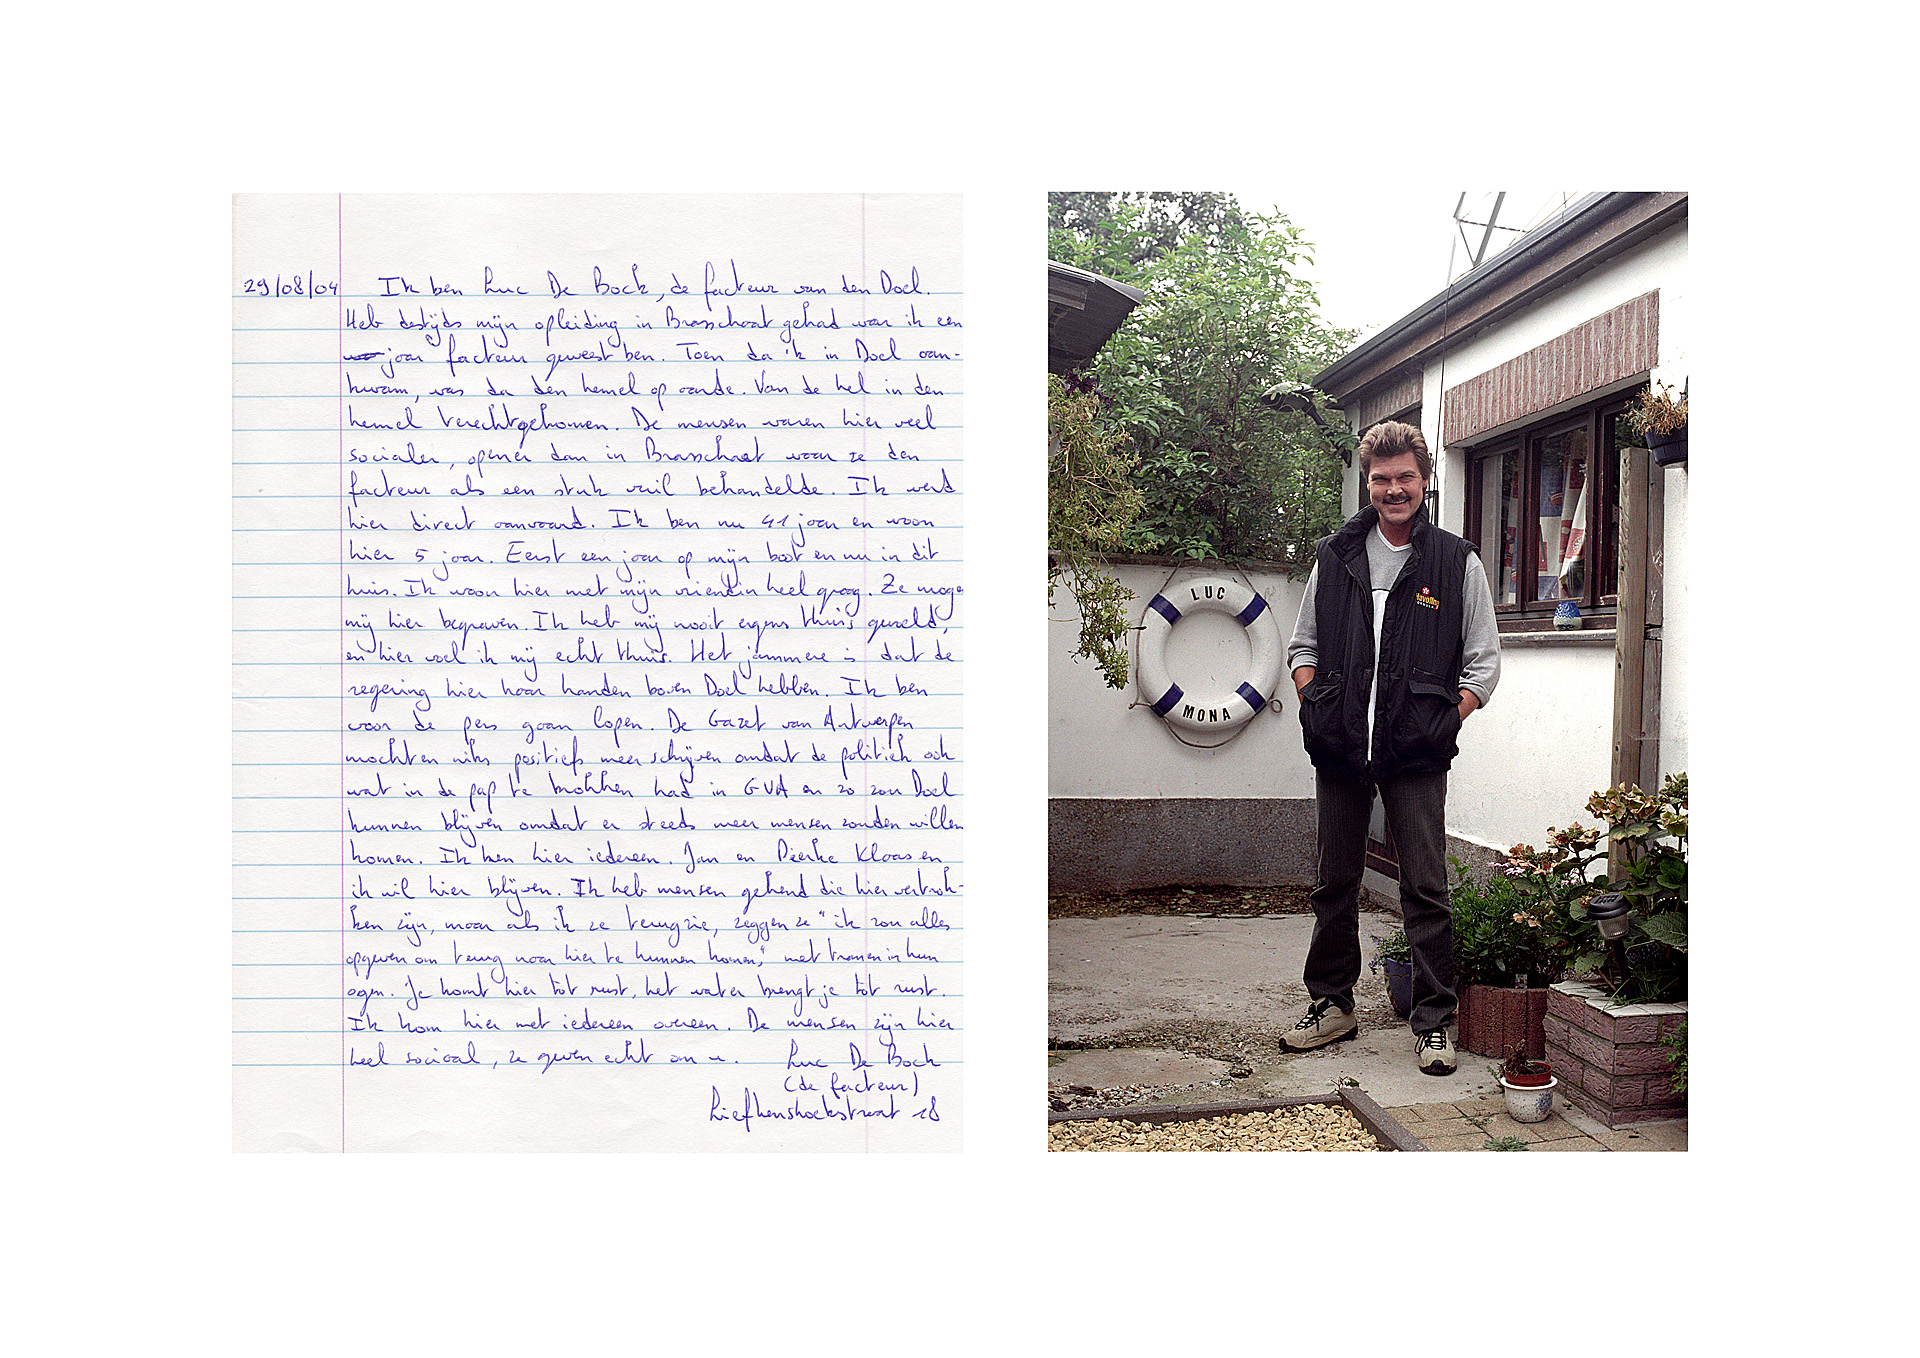 29/08/04 Ik ben Luc De Bock, de facteur van den Doel.
Heb destijds mijn opleiding in Brasschaat gehad waar ik een
jaar facteur geweest ben. Toen da 'k in Doel aan-
kwam, was da den hemel op aarde. Van de hel in den
hemel terechtgekomen. De mensen waren hier veel
socialer, opener dan in Brasschaat waar ze den
facteur als een stuk vuil behandelde. Ik werd
hier direct aanvaard. Ik ben nu 41 jaar en woon
hier 5 jaar. Eerst een jaar op mijn boot en nu in dit
huis. Ik woon hier met mijn vriendin heel graag. Ze moge
mij hier begraven. Ik heb mij nooit ergens thuis gevoeld,
en hier voel ik mij echt thuis. Het jammere is dat de
regering hier haar handen boven Doel hebben. Ik ben
voor de pers gaan lopen. De Gazet van Antwerpen
mochten niks positiefs meer schrijven omdat de politiek ook
wat in de pap te brokken had in GVA en zo zou Doel
kunnen blijven omdat er steeds meer mensen zouden willen
komen. Ik ken hier iedereen. Jan en Pierke Klaas en
ik wil hier blijven. Ik heb mensen gekend die hier vertrok-
ken zijn, maar als ik ze terugzie, zeggen ze "ik zou alles
opgeven om terug naar hier te kunnen komen," met tranen in hun
ogen. Je komt hier tot rust, het water brengt je tot rust.
Ik kom hier met iedereen overeen. De mensen zijn hier
heel sociaal, ze geven echt om u. Luc De Bock
(de facteur)
Liefkenshoekstraat 18
LUC
MONA
Havoline